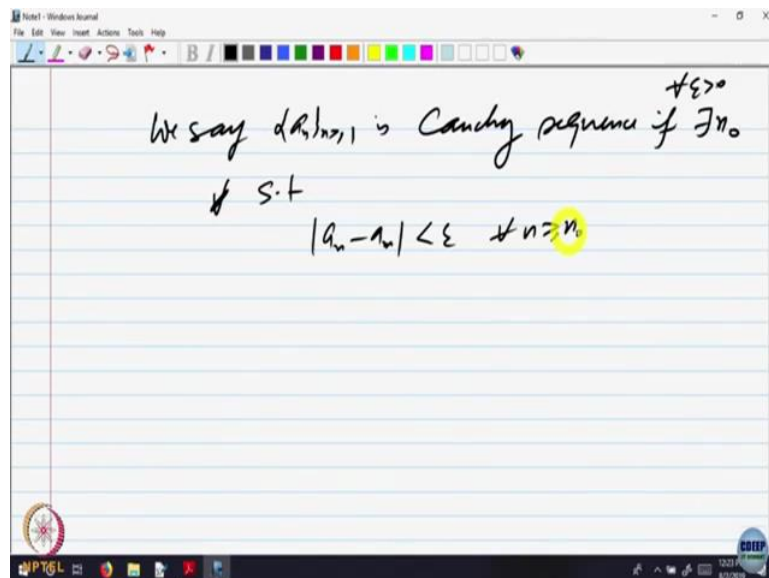 Note1 - Windows Journal
File Edit View Insert Actions Tools Help
B I
∀ε>0
We say {aₙ}ₙ≥₁ is Cauchy sequence if ∃n₀
s.t
|aₙ - aₙ| < ε ∀ n ≥ n₀
NPTEL
CDEEP